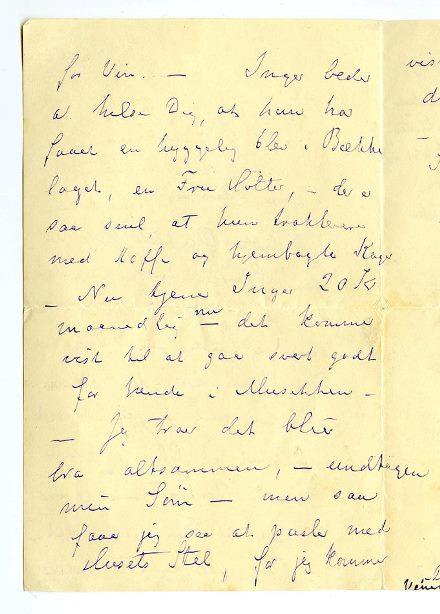 for Vin. . — Inger beder
at hilse Dig, at hun har
faaet en hyggelig Elev i Bække
laget, en Frue Holter, — der er
saa snil, at hun trakterer
med Kaffe og hjembagte Kager
— Nu tjener Inger 20 Kr
maanedlig nu — det kommer
vist til at gaa svært godt
for hende i Musikken —
— Jeg tror det blir
bra altsammen, — undtagen
min Søvn — men saa
faar jeg saa at pusle med
Husets Stel, for jeg kommer
vis
d
—